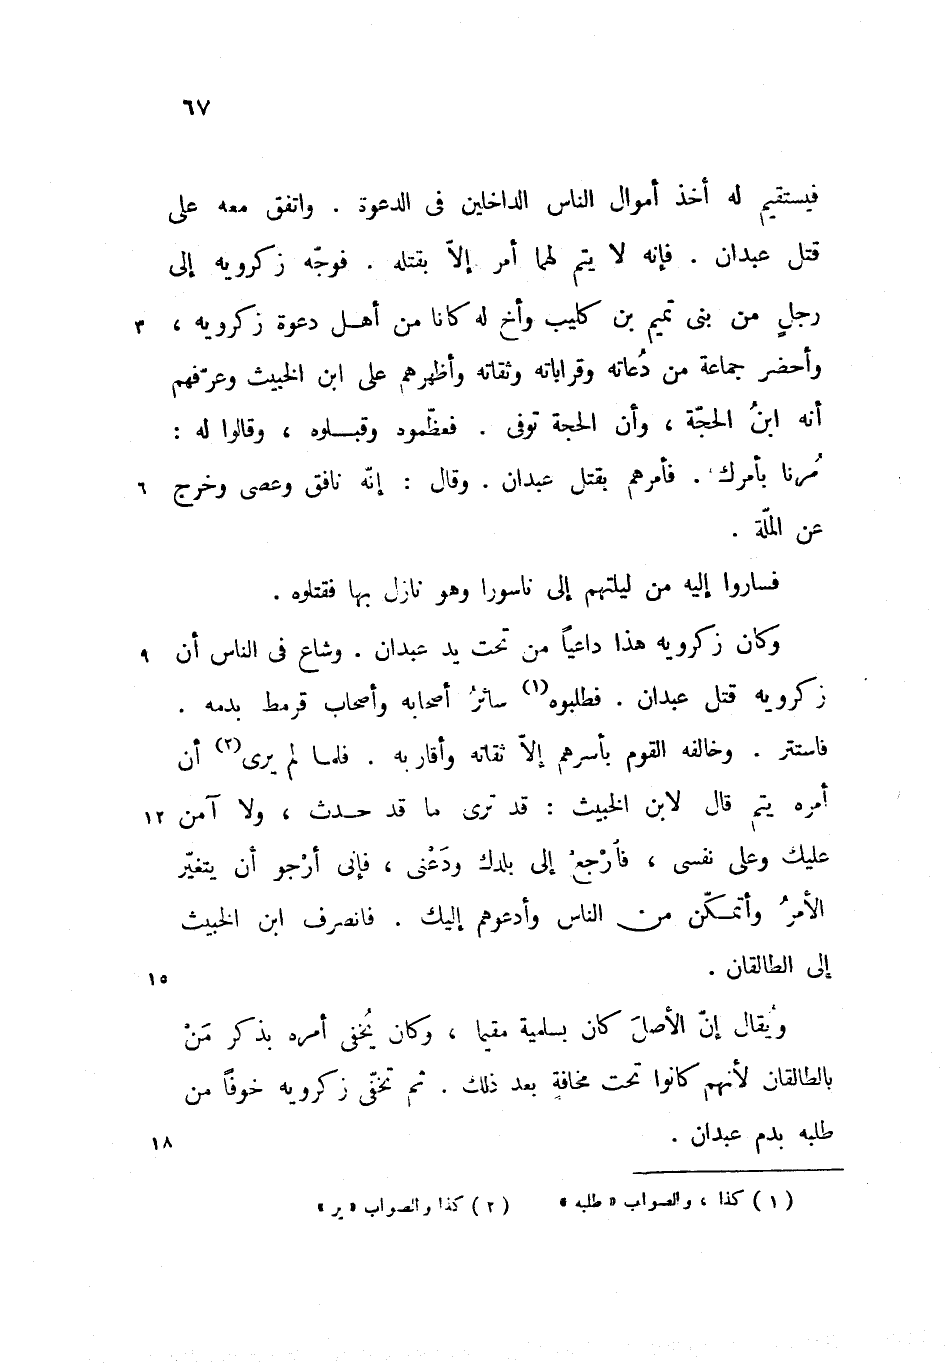 ٦٧
فيستقيم له أخذ أموال الناس الداخلين فى الدعوة . واتفق معه على
قتل عبدان . فإنه لا يتم لهما أمر إلاّ بقتله . فوجّه زكرويه إلى
رجلٍ من بنى تميم بن كليب وأخ له كانا من أهل دعوة زكرويه ، ٣
وأحضر جماعة من دُعاته وقراباته وثقاته وأظهرهم على ابن الخبيث وعرّفهم
أنه ابنُ الحجّة ، وأن الحجة توفى . فعظّموه وقبلوه ، وقالوا له :
مُرنا بأمرك . فأمرهم بقتل عبدان . وقال : إنّه نافق وعصى وخرج ٦
عن الملّة .
فساروا إليه من ليلتهم إلى ناسورا وهو نازل بها فقتلوه .
وكان زكرويه هذا داعياً من تحت يد عبدان . وشاع فى الناس أن ٩
زكرويه قتل عبدان . فطلبوه (١) سائرُ أصحابه وأصحاب قرمط بدمه .
فاستتر . وخالفه القوم بأسرهم إلاّ ثقاته وأقاربه . فلما لم يرى (٢) أن
أمره يتم قال لابن الخبيث : قد ترى ما قد حدث ، ولا آمن ١٢
عليك وعلى نفسى ، فاُرْجعْ إلى بلدك ودَعْنى ، فإنى أرْجو أن يتغيّر
الأمرُ وأتمكّن من الناس وأدعوهم إليك . فانصرف ابن الخبيث
إلى الطالقان . ١٥
ويُقال إنّ الأصلَ كان بسلمية مقيما ، وكان يُخفى أمره بذكر مَنْ
بالطالقان لأنهم كانوا تحت مخافةٍ بعد ذلك . ثم تخفّى زكرويه خوفًا من
طلبه بدم عبدان . ١٨
(١) كذا ، والصواب « طلبه » (٢) كذا والصواب « ير »